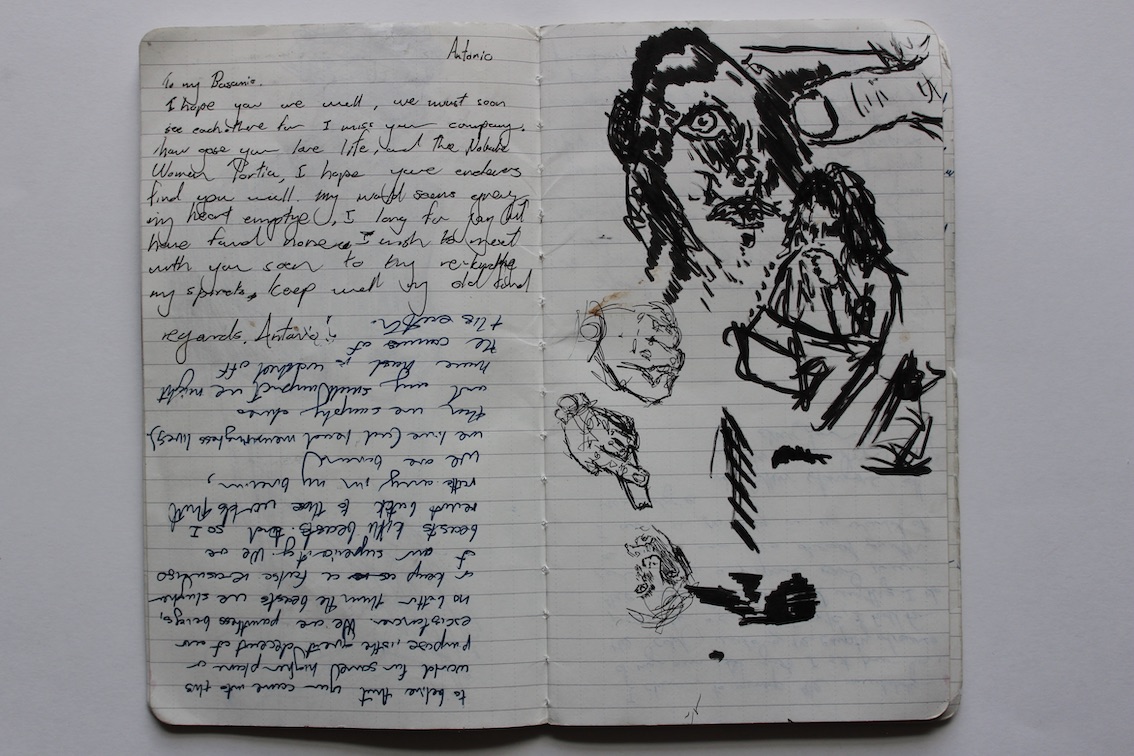 Antonio
To my Basanio.
I hope you are well, we must soon
see eachothere for I miss your company.
how gose your love life, and the Nobule
Woman Portia, I hope youre endevers
find you well. my world seems grey
my heart emptye, I long for joy but
have found none. I wish to meet
with you soon to try re-kindle
my spirets, keep well my old frind
regards, Antonio
to belive that you came into this
world for higher plane or
purpose, is the great deceat of our
existance. We are pointless beings,
no better than the beasts we slughter
or keep as a false
of our superiority. We are
beasts kill beasts. And so I
revert back to those words that
rattle away in my brain,
we are
we live (and lead meaningless lives)
then we simply
and any small impact we might
have had is washed off
the canvas of
this earth.